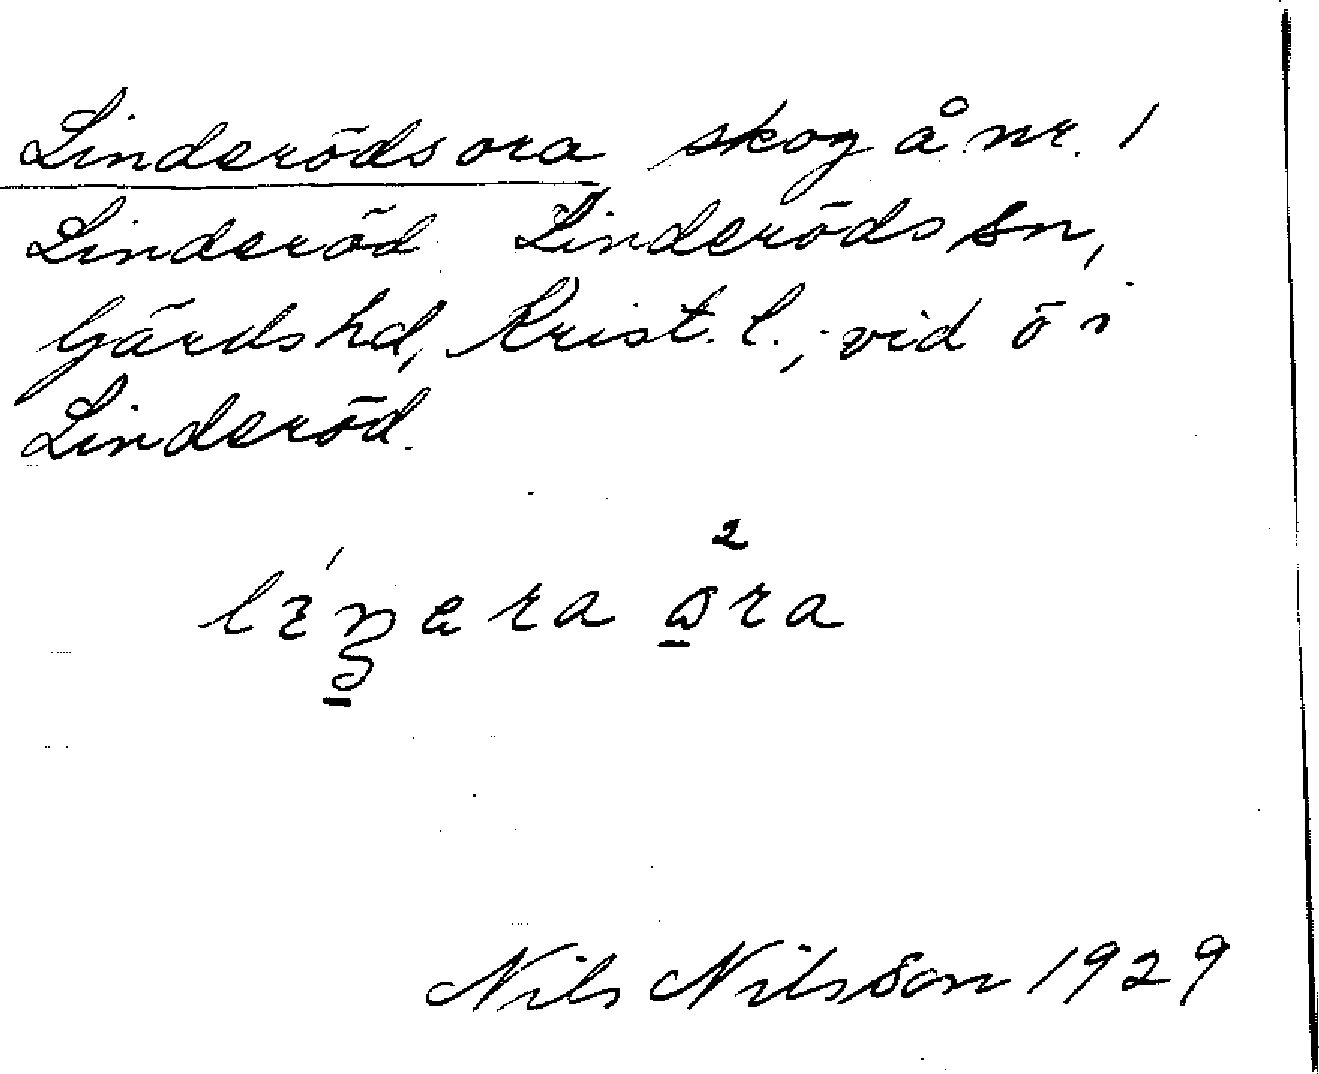 Linderödsora skog å nr. 1
Linderöd Linderöds sn,
Gärds hd, Krist. l., vid ö i
Linderöd.
Nils Nilsson 1929